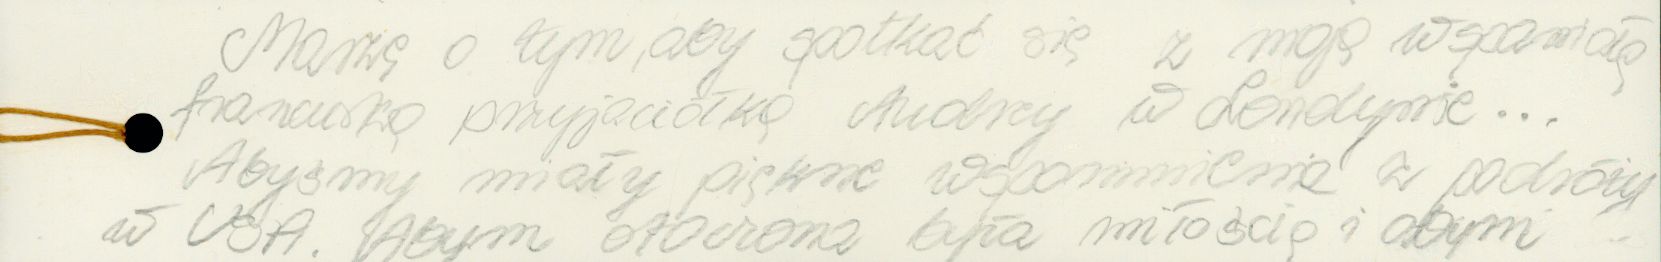 Marzę o tym, aby spotkać się z moją wspaniałą
francuską przyjaciółką Audrey w Londynie...
Abyśmy miały piękne wspomnienia z podróży
w USA. Abym otoczona była miłością i abym